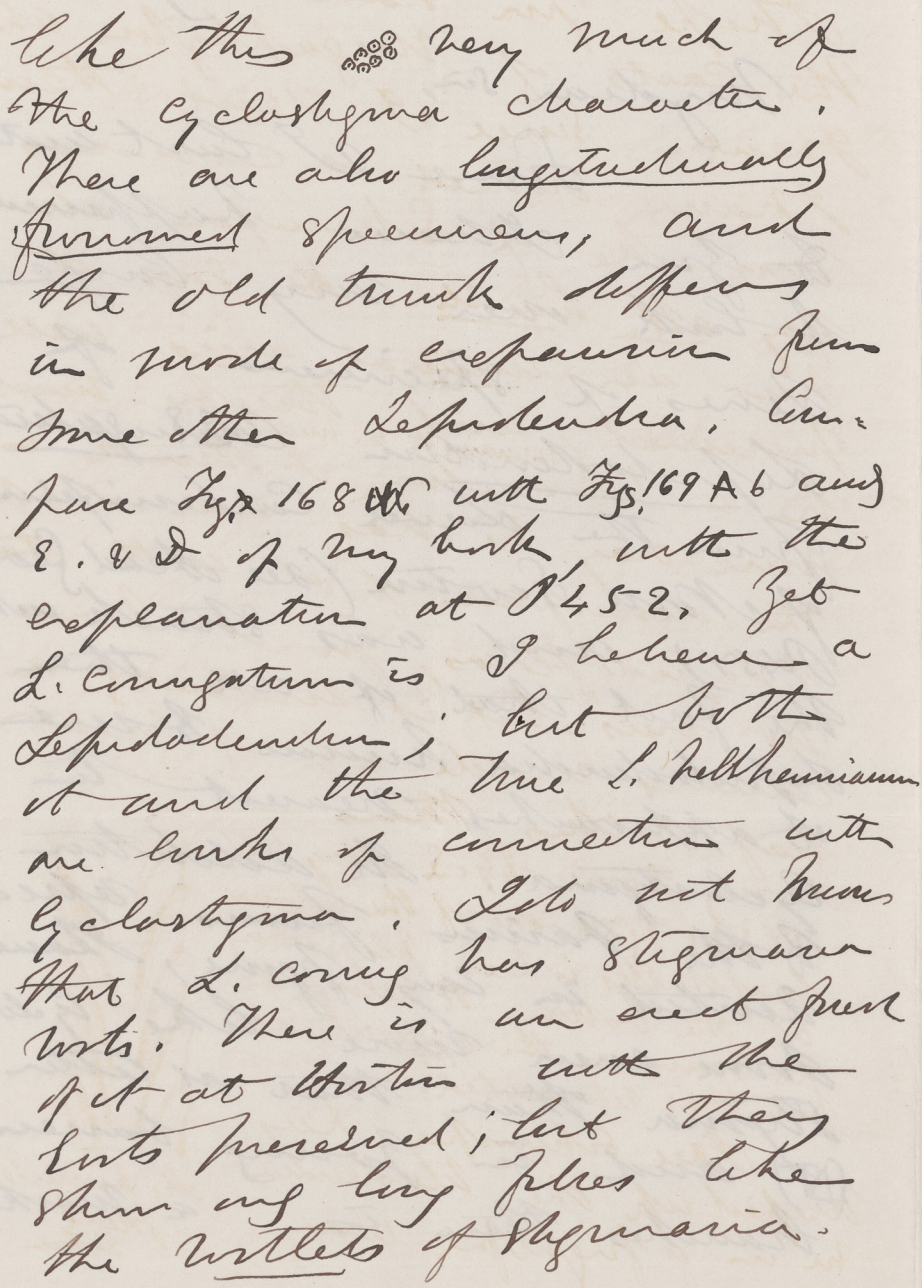 like this very much of
the Cyclostigma character.
There are also longitudinally
furrowed specimens, and
the old trunk differs
in mode of expansion from
some other Lepidodendra. Com-
pare Figs 168 with Figs. 169 A b and
E. & D of my book, with the
explanation at P 452. Yet
L. corrugatum is I believe a
Lepidodendron; but both
it and the true L. Veltheimianum
are links of connection with
Cyclostigma. I do not know
that L. corrug has Stigmaria
roots. There is an erect forest
of it at Horton with the
roots preserved; but they
show only long fibres like
the rootlets of Stigmaria.